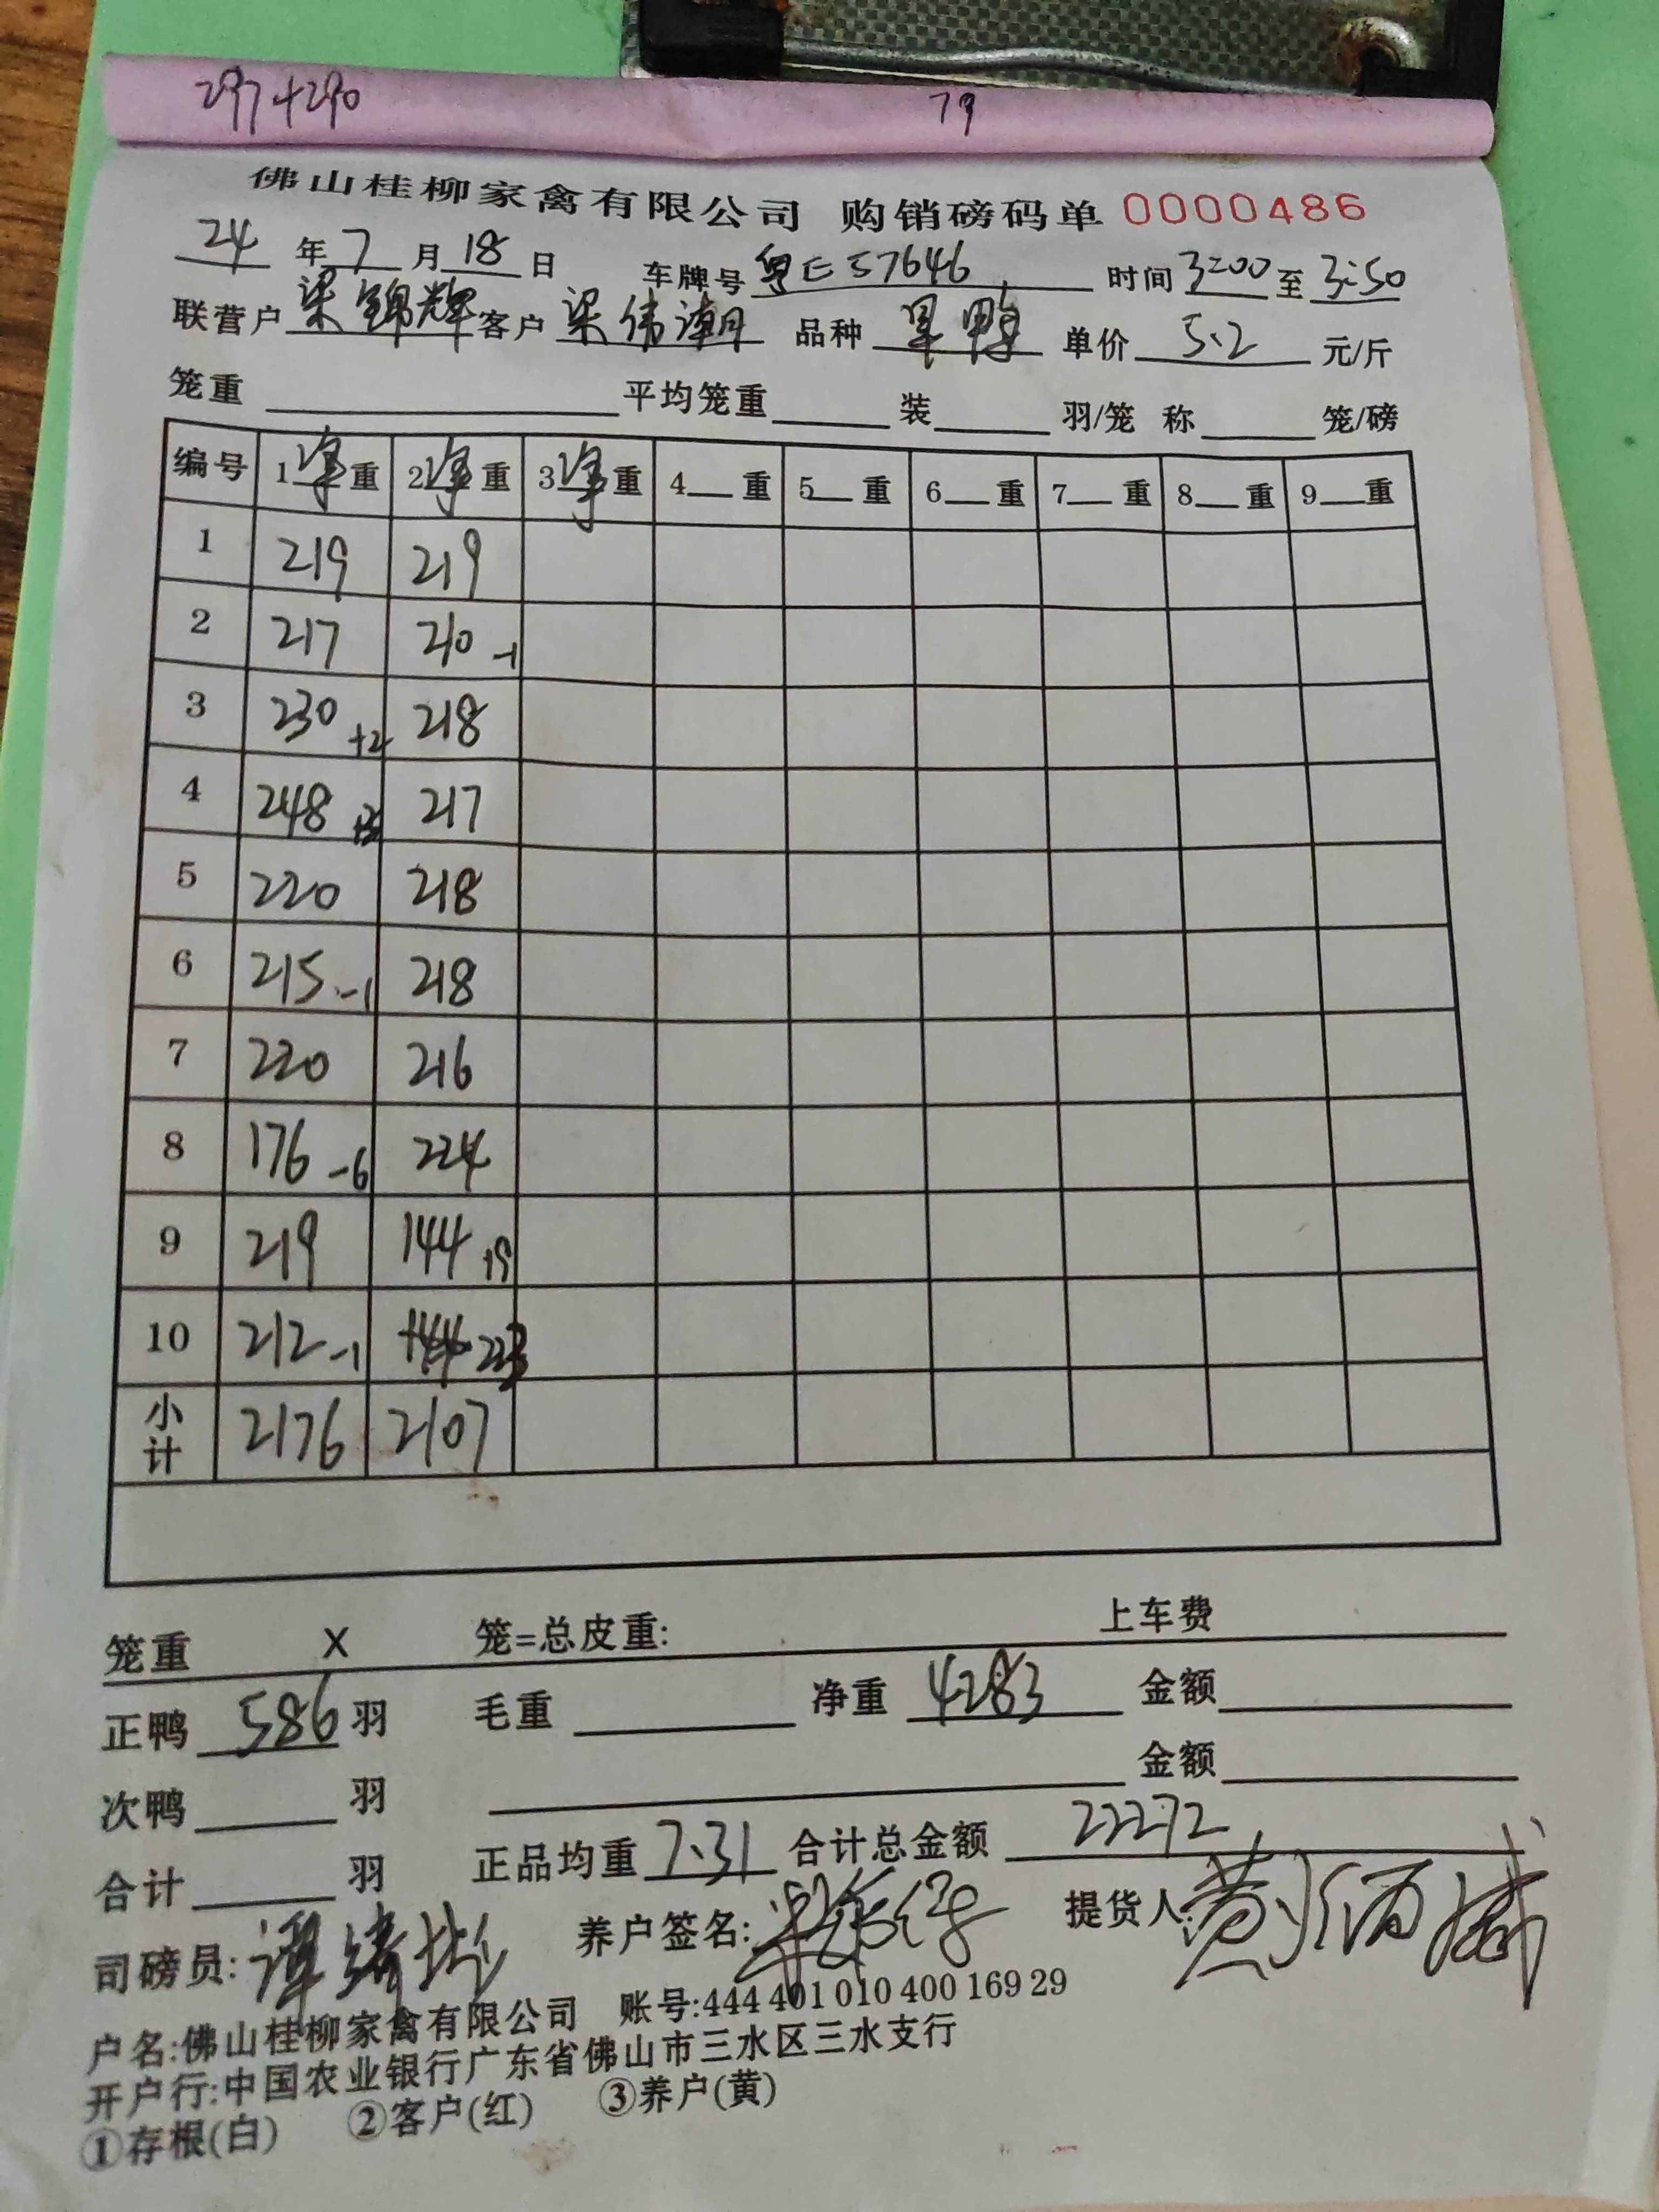 297+290 79
佛山桂柳家禽有限公司 购销磅码单 0000486
24年7月18日 车牌号粤E57646 时间3:00至3:50
联营户梁锦辉客户梁伟潮 品种 单价5.2元/斤
笼重 平均笼重 装 羽/笼 称 笼/磅
编号 1净重 2净重 3净重 4重 5重 6重 7重 8重 9重
1 219 219
2 217 210 -1
3 230 +2 218
4 248 217
5 220 218
6 215 -1 218
7 220 216
8 176 -6 224
9 219 144
10 212 -1
小计 2176 2107
笼重 X 笼=总皮重: 上车费
正鸭586羽 毛重 净重4283 金额
次鸭 羽 金额
合计 羽 正品均重7.31 合计总金额22272
司磅员: 养户签名: 提货人:
户名:佛山桂柳家禽有限公司 账号:444 401 010 400 169 29
开户行:中国农业银行广东省佛山市三水区三水支行
①存根(白) ②客户(红) ③养户(黄)